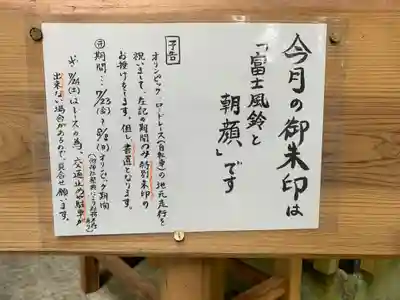 今月の御朱印は
「富士風鈴と
朝顔」です
予告
オリンピック ロードレース(自転車)の地元走行を
祝いまして、左記の期間のみ特別朱印の
お授けをします。但し書置となります。
期間…7/23(金)〜8/8(日)オリンピック期間
7/24(土)はレースの為、交通止めや駐車が
出来ない場合があるので、お問合せ願います。